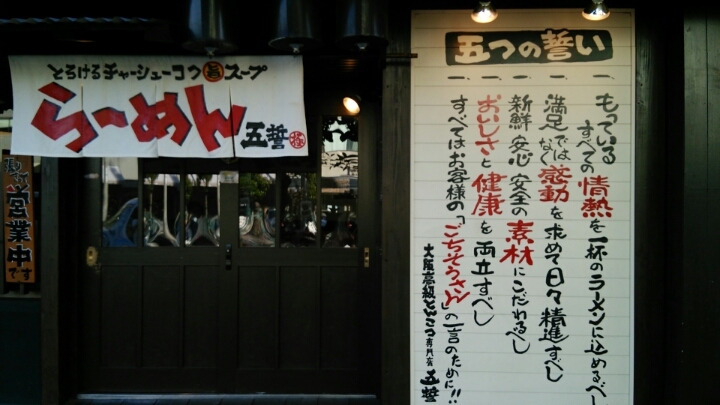 とろけるチャーシューコク旨スープ
らーめん
五誓
営業中
です
五つの誓い
一、もっているすべての情熱を一杯のラーメンに込めるべし
一、満足ではなく感動を求めて日々精進すべし
一、新鮮安心安全の素材にこだわるべし
一、おいしさと健康を両立すべし
すべてはお客様の「ごちそうさん」の一言のために!!
大阪高級とんこつ専門店 五誓